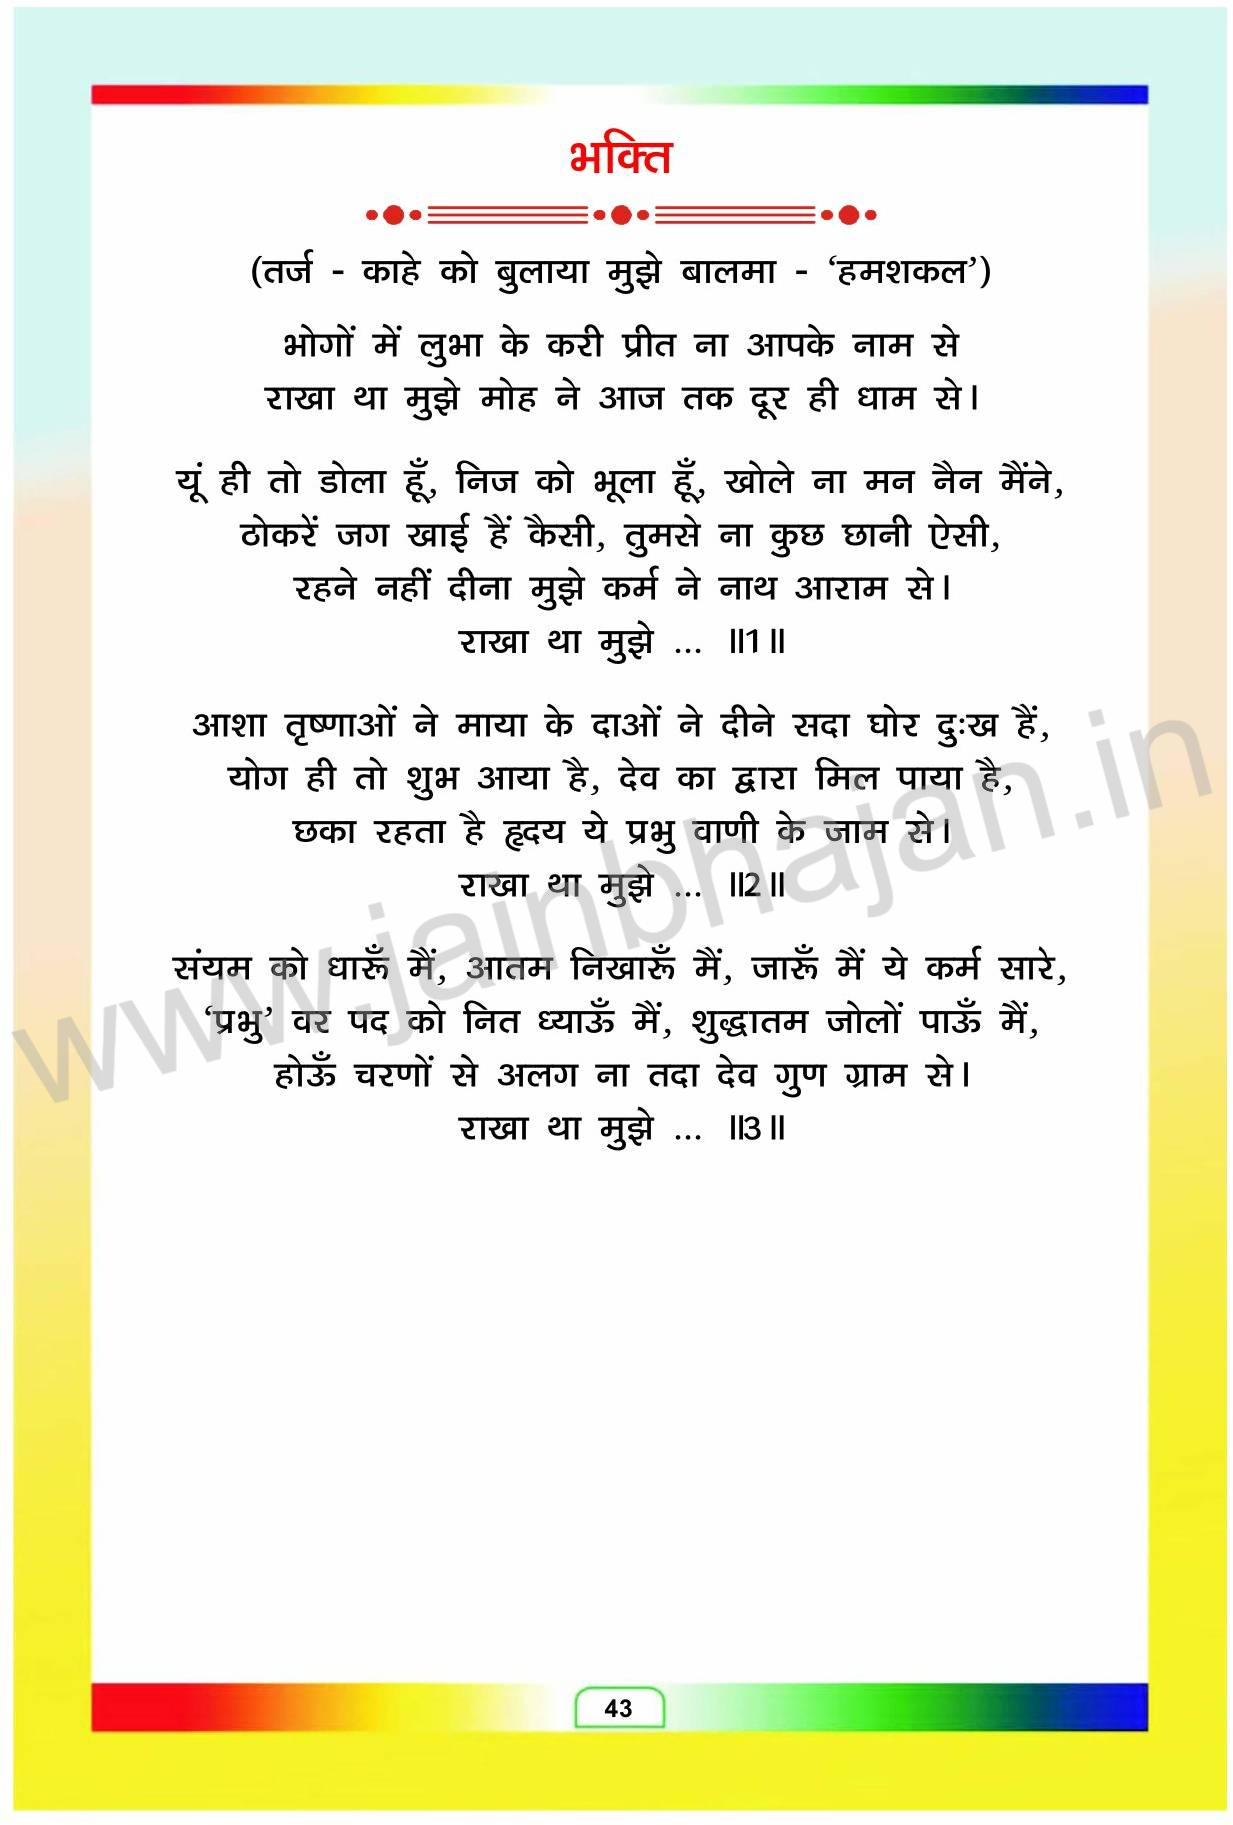 भक्ति
(तर्ज - काहे को बुलाया मुझे बालमा - ‘हमशकल’)
भोगों में लुभा के करी प्रीत ना आपके नाम से
राखा था मुझे मोह ने आज तक दूर ही धाम से।
यूं ही तो डोला हूँ, निज को भूला हूँ, खोले ना मन नैन मैंने,
ठोकरें जग खाई हैं कैसी, तुमसे ना कुछ छानी ऐसी,
रहने नहीं दीना मुझे कर्म ने नाथ आराम से।
राखा था मुझे ... ॥1॥
आशा तृष्णाओं ने माया के दाओं ने दीने सदा घोर दुःख हैं,
योग ही तो शुभ आया है, देव का द्वारा मिल पाया है,
छका रहता है हृदय ये प्रभु वाणी के जाम से।
राखा था मुझे ... ॥2॥
संयम को धारूँ मैं, आतम निखारूँ मैं, जारूँ मैं ये कर्म सारे,
‘प्रभु’ वर पद को नित ध्याऊँ मैं, शुद्धातम जोलों पाऊँ मैं,
होऊँ चरणों से अलग ना तदा देव गुण ग्राम से।
राखा था मुझे ... ॥3॥
www.jainbhajan.in
43